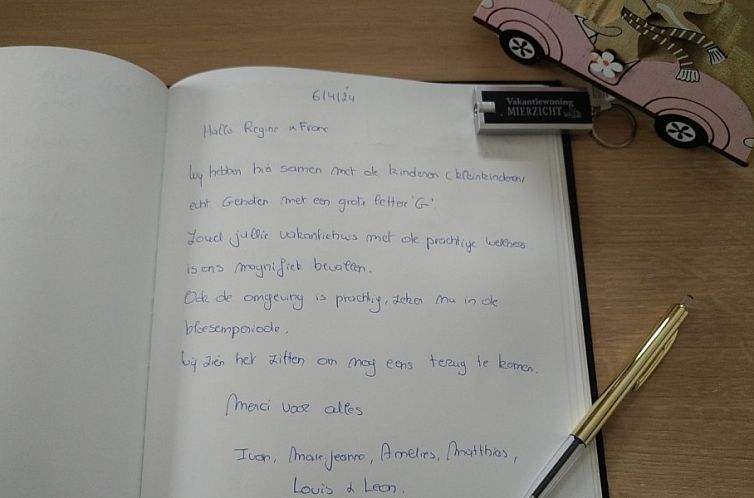 6/4/24
Vakantiewoning
MIERZICHT
Hallo Regine n Franc
Wij hebben hier samen met de kinderen (kleinkinderen)
echt Genoten met een grote letter 'G'.
Zowel jullie vakantiehuis met de prachtige wellness
is ons magnifiek bevallen.
Ook de omgeving is prachtig, zeker nu in de
bloesemperiode.
Wij zien het zitten om nog eens terug te komen.
Merci voor alles
Ivan, Marie Jeanne, Amelies, Matthias,
Louis & Leon.